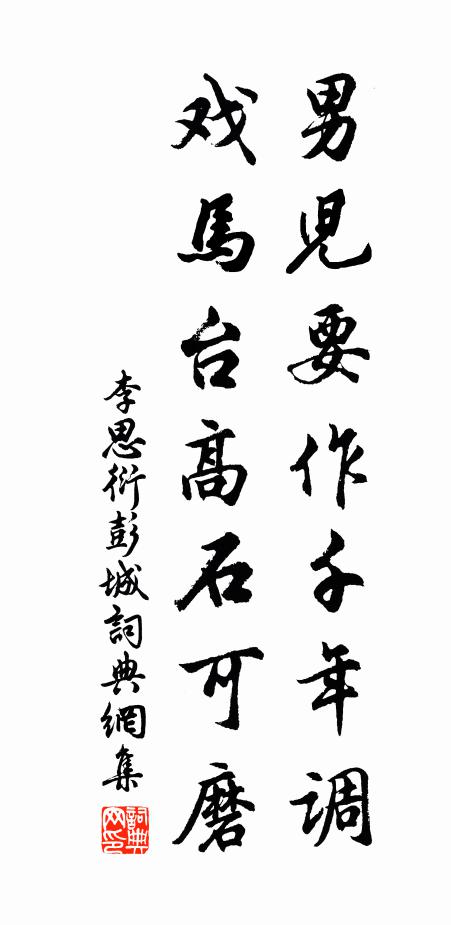 男兒要作千年調
戏馬台高石可磨
李思衍彭城詞典網集
詞典网印